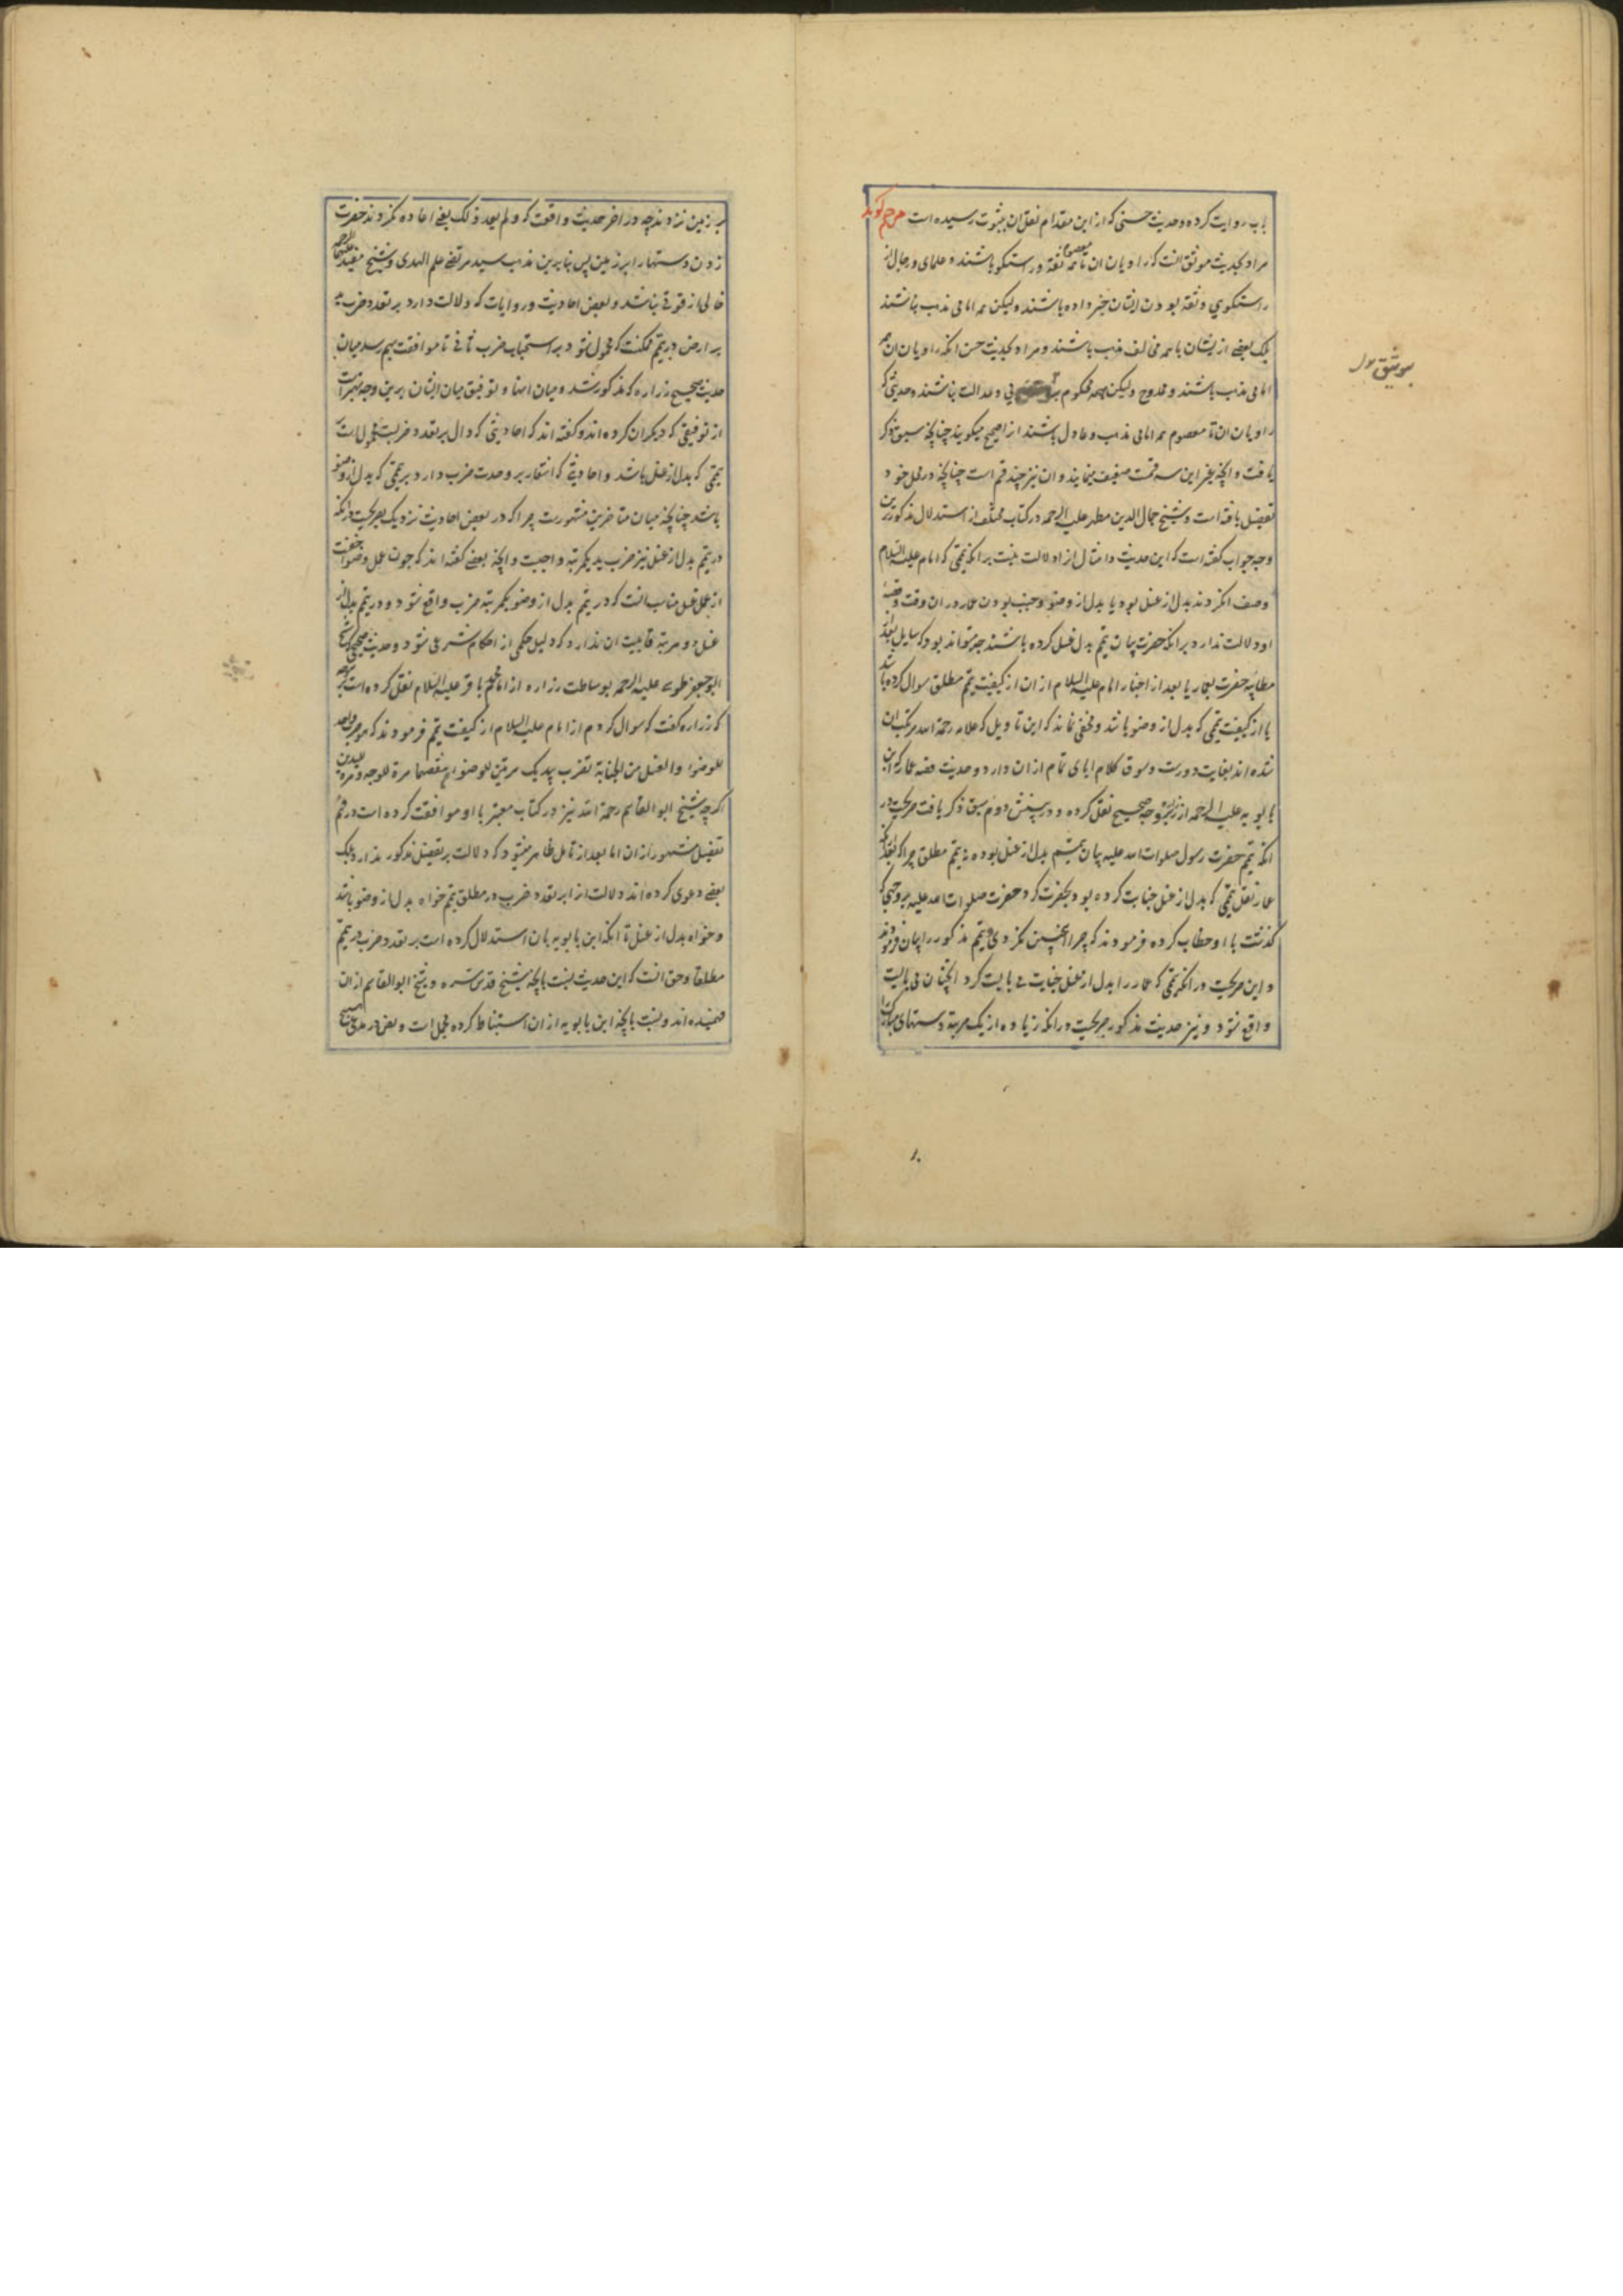 باب روایت کرده و حدیث حسنی که از این مقدام نقل ان بثبوت رسیده است مترجم کوید
مراد بحدیث موثق انست که راویان ان تا معصوم همه ثقه و راستکو باشند و علمای رجال از
راستکوی و ثقه بودن ایشان خبر داده باشند ولیکن همه امامی مذهب نباشند
بلکه بعضی از یشان یا همه مخالف مذهب باشند و مراد بحدیث حسن انکه راویان ان همه
امامی مذهب باشند و ممدوح ولیکن همه محکوم به وعدالت نباشند و حدیثی که
راویان ان تا معصوم همه امامی مذهب و عادل باشند انرا صحیح میکویند چنانچه سبق ذکر
یافت و انچه غیر این سه قسمست ضعیف مینامند و ان نیز چند قسم است چنانچه در محل خود
تفصیل یافته است و شیخ جمال الدین مطهر علیه الرحمه در کتاب مختلف از استدلال مذکور برین
وجه جواب کفته است که این حدیث و امثال انرا دلالت نیست بر انکه تیممی که امام علیه السلام
وصف انکردند بدل از غسل بود یا بدل از وضو و جنب بودن عمار در ان وقت و قصه
او دلالت ندارد بر انکه حضرت بیان تیمم بدل غسل کرده باشند چه میتواند بود که سایل بعد
مطایبه حضرت بعمار یا بعد از اخبار امام علیه السلام از ان از کیفیت تیمم مطلق سوال کرده باشد
یا از کیفیت تیممی که بدل از وضو باشد و مخفی نماند که این تاویل که علامه رحمة الله مرتکب ان
شده اند بغایت دورست و سوق کلام ابای تمام از ان دارد و حدیث قصه عمار که ابن
بابویه علیه الرحمه از زراره بوجه صحیح نقل کرده و در پیش دوم سبق ذکر یافت صریحست در
انکه تیمم حضرت رسول صلوات الله علیه بیان بدل از غسل بوده نه تیمم مطلق چرا که بعد از انکه
عمار نقل تیممی که بدل از غسل جنابت کرده بود بحضرت کرد حضرت صلوات الله علیه بروجهی که
کذشت با او خطاب کرده فرمودند که چرا اینچنین نکردی و تیمم مذکور را بیان فرمودند
و این صریحست در انکه تیممی که عمار را بدل از غسل جنابت می بایست کرد انچنان می بایست
واقع شود و نیز حدیث مذکور صریحست در انکه زیاده از یک مرتبه دستهای مبارک را
موثیق
بر زمین نزدند چه در اخر حدیث واقعست که و لم یعد ذلک یعنی اعاده نکردند حضرت
زدن دستها را بر زمین پس بنا برین مذهب سید مرتضی علم الهدی و شیخ مفید علیهما الرحمه
خالی از قوتی نباشد و بعض احادیث و روایات که دلالت دارد بر تعدد ضرب
بر ارض در تیمم ممکنست که محمول شود بر استحباب ضرب ثانی تا موافقت بهم رسد میان
حدیث صحیح زراره که مذکور شد و میان انها و توفیق میان ایشان برین وجه بهتر است
از توفیقی که دیکران کرده اند و کفته اند که احادیثی که دال بر تعدد ضربست محمول است
تیممی که بدل از غسل باشد و احادیثی که اشعار بر وحدت ضرب دارد بر تیممی که بدل از وضو
باشد چنانچه میان متاخرین مشهورست چرا که در بعض احادیث نزدیک بصریحست در انکه
در تیمم بدل از غسل نیز ضرب ید یکمرتبه واجبست و انچه بعضی کفته اند که چون عمل وضو اخفست
از عمل غسل مناسب انست که در تیمم بدل از وضو یکمرتبه ضرب واقع شود و در تیمم بدل از
غسل دو مرتبه قابلیت ان ندارد که دلیل حکمی از احکام شرعی شود و حدیث صحیحی که شیخ
ابو جعفر طوسی علیه الرحمه بوساطت زراره از امام محمد باقر علیه السلام نقل کرده است
که زراره کفت که سوال کردم از امام علیه السلام از کیفیت تیمم فرمودند که هو ضرب واحد
للوضوء و الغسل من الجنابة تضرب بیدیک مرتین ثم تنفضهما مرة للوجه و مرة للیدین
اکرچه شیخ ابو القاسم رحمة الله نیز در کتاب معتبر با او موافقت کرده است در فهم
تفصیل مشهور از ان اما بعد از تامل ظاهر میشود که دلالت بر تفصیل مذکور ندارد بلکه
بعضی دعوی کرده اند دلالت انرا بر تعدد ضرب در مطلق تیمم خواه بدل از وضو باشد
و خواه بدل از غسل تا انکه ابن بابویه بان استدلال کرده است بر تعدد ضرب در تیمم
مطلقا و حق انست که این حدیث نسبت بانچه شیخ قدس سره و شیخ ابو القاسم از ان
فهمیده اند و نسبت بانچه ابن بابویه از ان استنباط کرده مجمل است و نص در مدعای هیچ